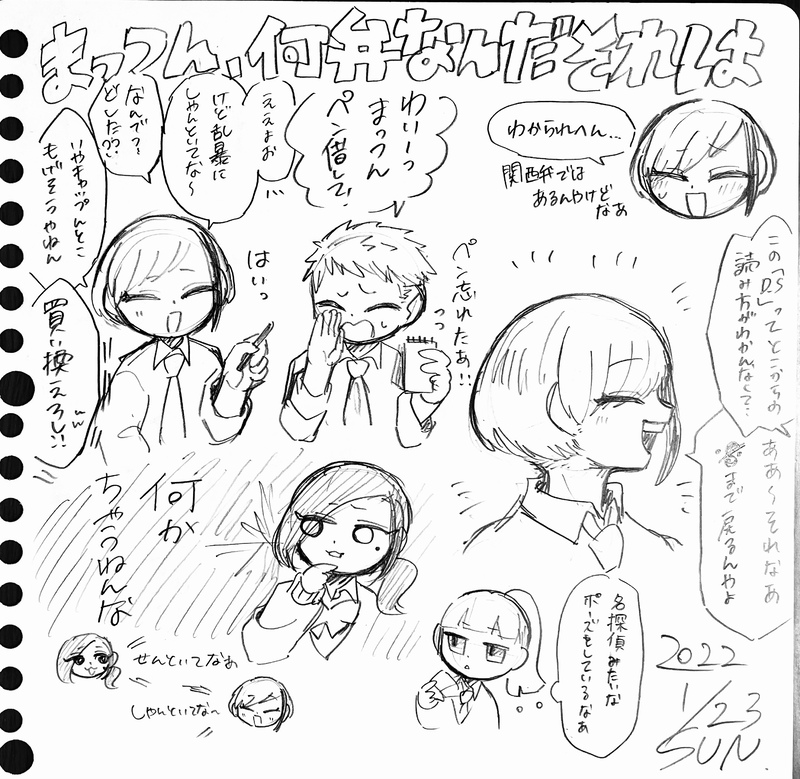 まっつん、何弁なんだそれは
わからへん…
関西弁では
あるんやけど
なあ
わいーっ
まっつん
ペン借して♡
ええよお…
けど乱暴に
しゃんといてな〜
なんでっ〜
どした??
いやキャップんとこ
もげそうやねん
買い換えろし!!
ww
はいっ
ペン忘れたぁ!!
この「D.S」ってとこからの
読み方がわかんなくて…
ああ〜それなあ
まで戻るんやよ
何か
ちゃうねんな
せんといてなぁ
しゃんといてな〜
名探偵みたいな
ポーズをしているなぁ
2022
1/23
SUN.